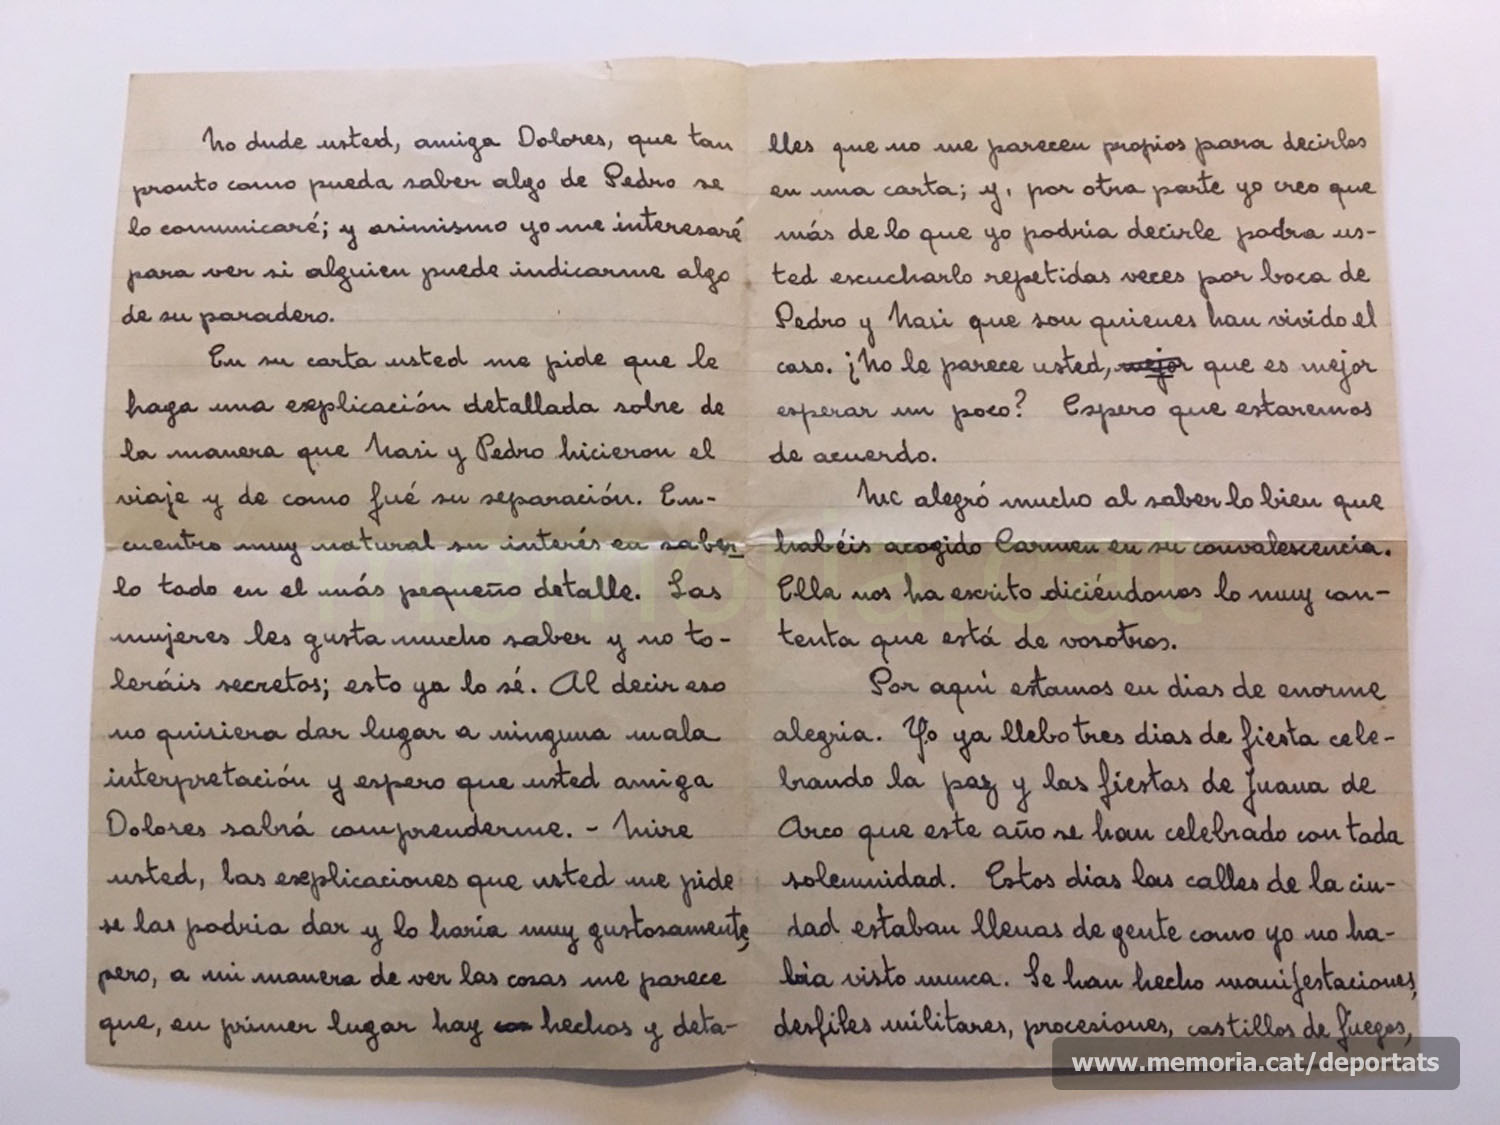 No dude usted, amiga Dolores, que tan
pronto como pueda saber algo de Pedro se
lo comunicaré; y asimismo yo me interesaré
para ver si alguien puede indicarme algo
de su paradero.
En su carta usted me pide que le
haga una explicación detallada sobre de
la manera que Nasi y Pedro hicieron el
viaje y de como fué su separación. En-
cuentro muy natural su interés en saber
lo todo en el más pequeño detalle. Las
mujeres les gusta mucho saber y no to-
leráis secretos; esto ya lo sé. Al decir eso
no quisiera dar lugar a ninguna mala
interpretación y espero que usted amiga
Dolores sabrá comprenderme. - Mire
usted, las explicaciones que usted me pide
se las podria dar y lo haría muy gustosamente,
pero, a mi manera de ver las cosas me parece
que, en primer lugar hay con hechos y deta-
lles que no me parecen propios para decirlos
en una carta; y, por otra parte yo creo que
más de lo que yo podría decirle podra us-
ted escucharlo repetidas veces por boca de
Pedro y Nasi que son quienes han vivido el
caso. ¡No le parece usted, mejor que es mejor
esperar un poco? Espero que estaremos
de acuerdo.
Me alegró mucho al saber lo bien que
habéis acogido Carmen en su convalescencia.
Ella nos ha escrito diciéndonos lo muy con-
tenta que está de vosotros.
Por aquí estamos en dias de enorme
alegria. Yo ya llebo tres dias de fiesta cele-
brando la paz y las fiestas de Juana de
Arco que este año se han celebrado con toda
solemnidad. Estos dias las calles de la ciu-
dad estaban llenas de gente como yo no ha-
bia visto nunca. Se han hecho manifestaciones,
desfiles militares, procesiones, castillos de fuegos,
www.memoria.cat/deportats
memoria.cat